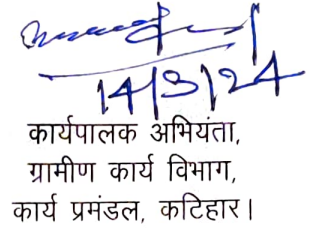 14/3/24
कार्यपालक अभियंता,
ग्रामीण कार्य विभाग,
कार्य प्रमंडल, कटिहार।